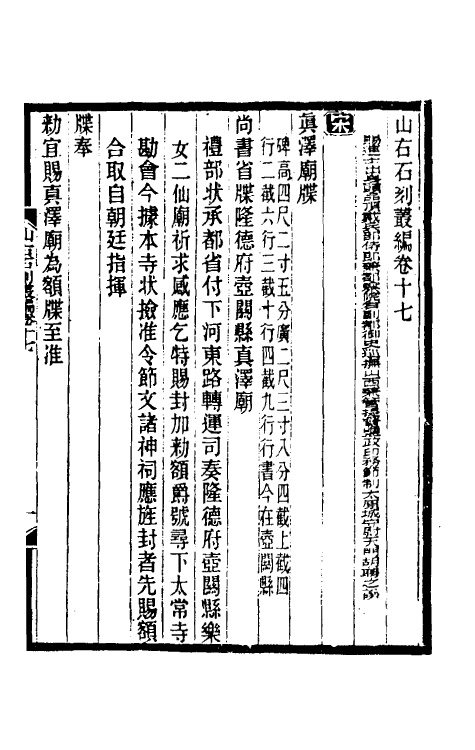 山右石刻叢編卷十七
宋
真澤廟牒
碑高四尺二寸五分廣二尺三寸八分四截上截四
行二截六行三截十行四截九行行書今在壺關縣
尚書省牒隆德府壺關縣真澤廟
禮部狀承都省付下河東路轉運司奏隆德府壺關縣樂
女二仙廟祈求感應乞特賜封加勑額爵號尋下太常寺
勘會今據本寺狀撿准令節文諸神祠應旌封者先賜額
合取自朝廷指揮
牒奉
勑宜賜真澤廟為額牒至准
山右石刻叢編卷十七
一